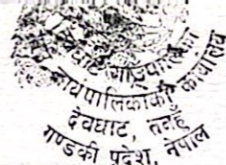 गाउँपालिका
कार्यपालिकाको कार्यालय
देवघाट, तनहुँ
गण्डकी प्रदेश, नेपाल